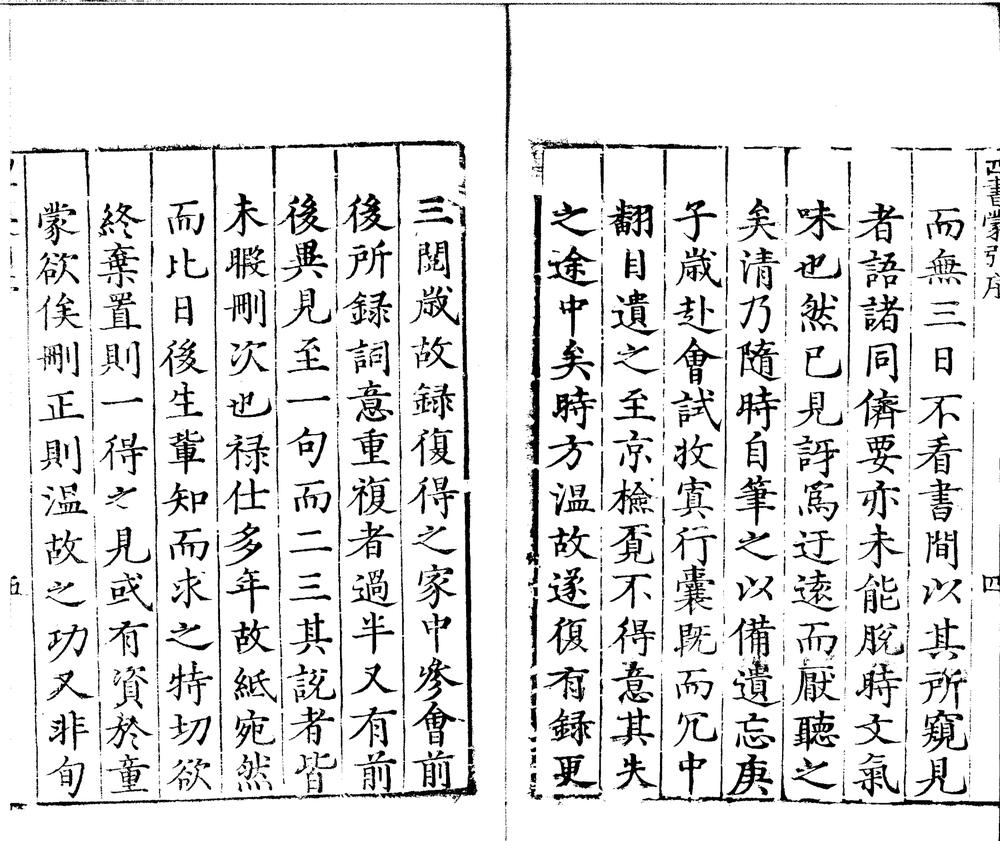 四書蒙引序
四
而無三日不看書間以其所窺見
者語諸同儕要亦未能脫時文氣
味也然已見訝爲迂遠而厭聽之
矣清乃隨時自筆之以備遺忘庚
子歲赴會試收寘行囊既而冗中
翻目遺之至京檢覔不得意其失
之途中矣時方溫故遂復有録更
三閲歲故録復得之家中參會前
後所録詞意重複者過半又有前
後異見至一句而二三其説者皆
未暇刪次也禄仕多年故紙宛然
而比日後生輩知而求之特切欲
終棄置則一得之見或有資於童
蒙欲俟刪正則溫故之功又非旬
五